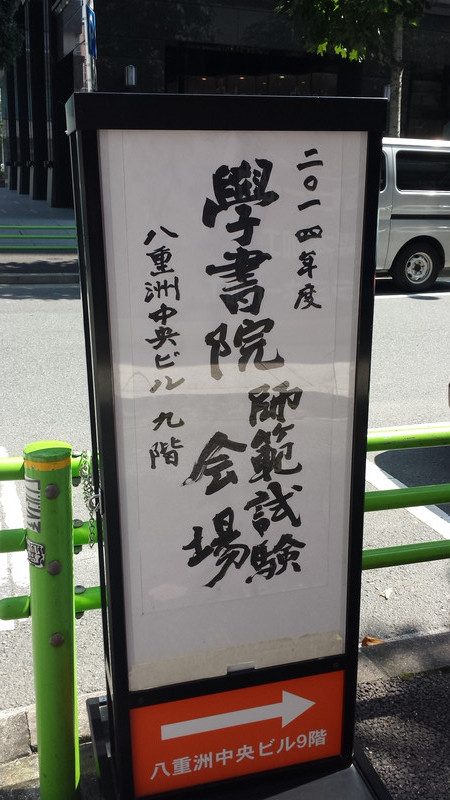 二〇一四年度
學書院
師範試験
会場
八重洲中央ビル 九階
八重洲中央ビル9階